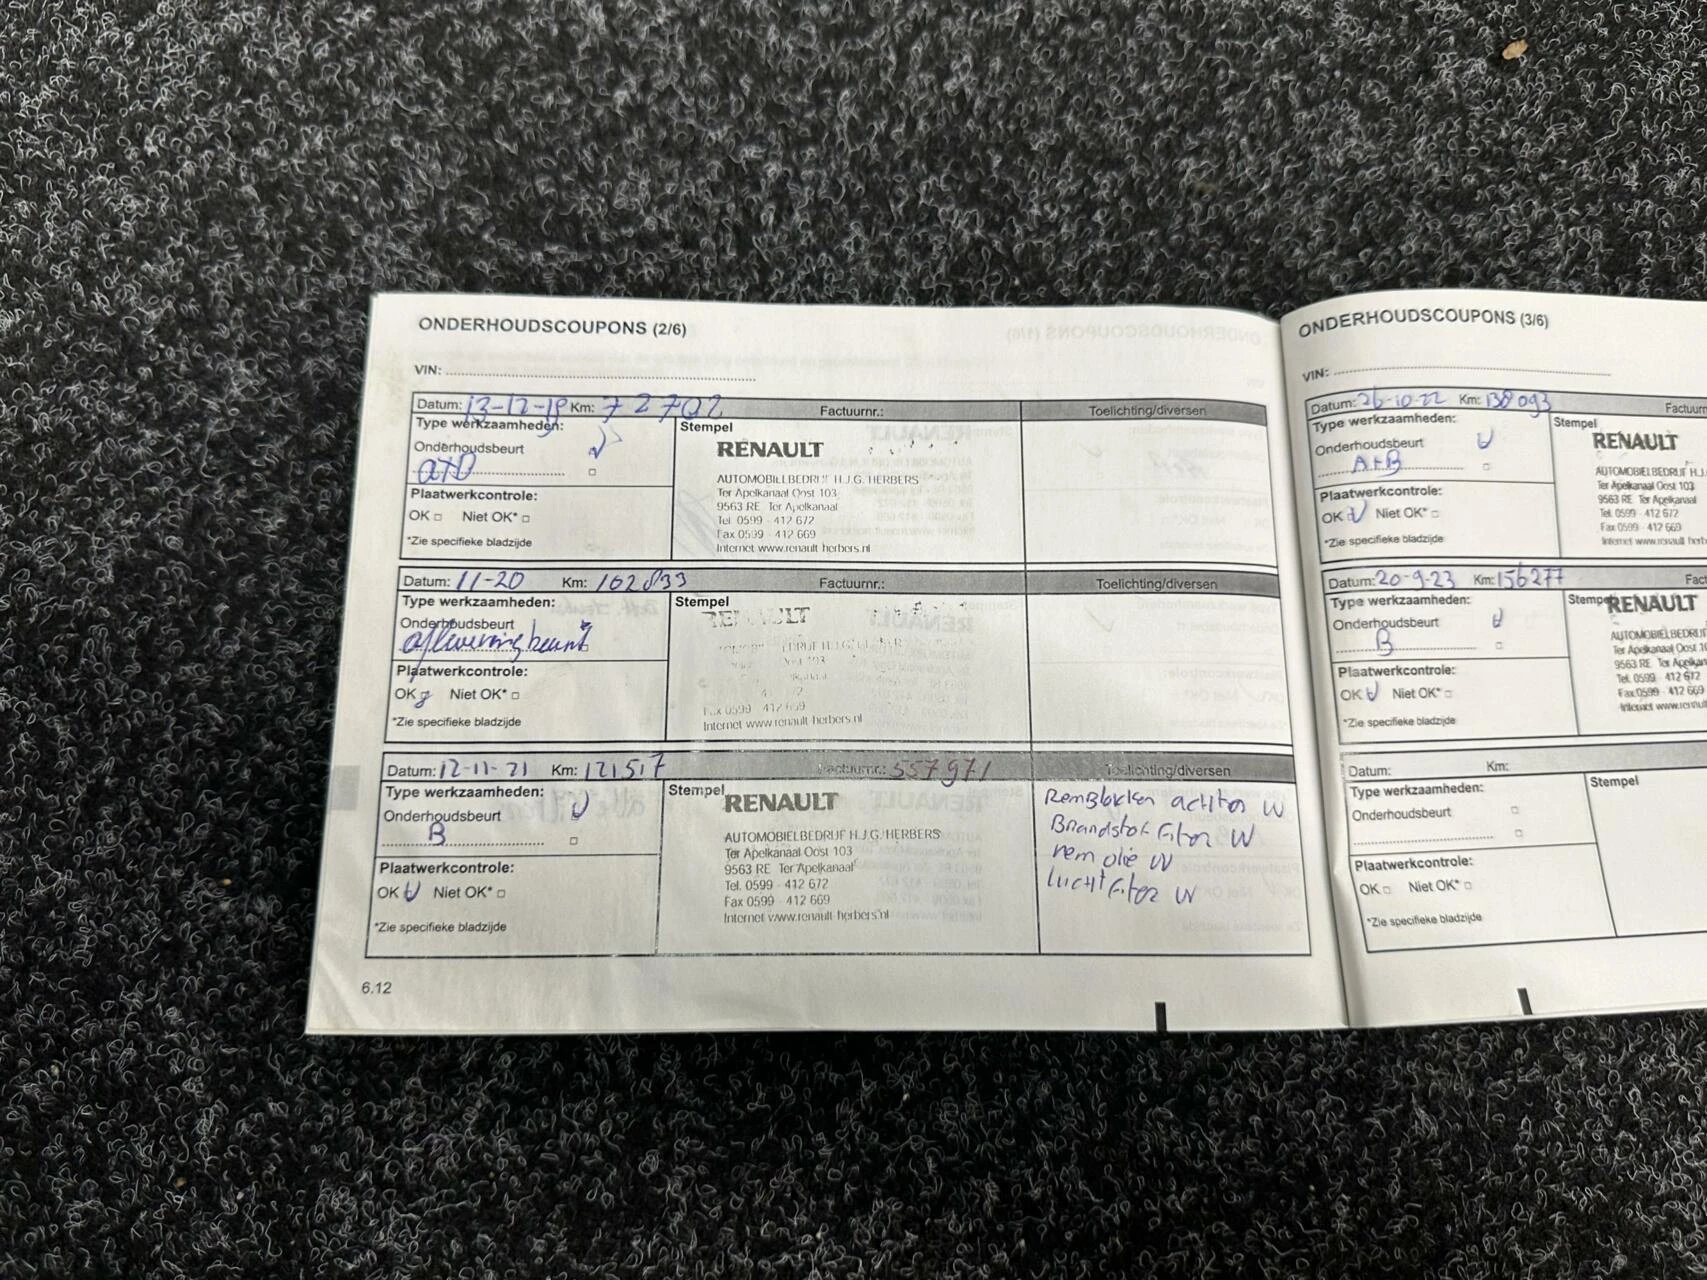 ONDERHOUDSCOUPONS (2/6)
VIN:
Datum: 13-12-19 Km: 72702 Factuurnr.: Toelichting/diversen
Type werkzaamheden:
Stempel
Onderhoudsbeurt
RENAULT
AUTOMOBIELBEDRIJF H.J.G. HERBERS
Ter Apelkanaal Oost 103
9563 RE Ter Apelkanaal
Tel. 0599 - 412 672
Fax 0599 - 412 669
Internet www.renault-herbers.nl
Plaatwerkcontrole:
OK Niet OK*
*Zie specifieke bladzijde
Datum: 11-20 Km: 102833 Factuurnr.: Toelichting/diversen
Type werkzaamheden:
Stempel
Onderhoudsbeurt
afleveringbeurt
RENAULT
Fax 0599 - 412 669
Internet www.renault-herbers.nl
Plaatwerkcontrole:
OK Niet OK*
*Zie specifieke bladzijde
Datum: 12-11-21 Km: 121517 Factuurnr.: 557971 Toelichting/diversen
Type werkzaamheden:
Stempel
Onderhoudsbeurt
B
RENAULT
AUTOMOBIELBEDRIJF H.J.G. HERBERS
Ter Apelkanaal Oost 103
9563 RE Ter Apelkanaal
Tel. 0599 - 412 672
Fax 0599 - 412 669
Internet www.renault-herbers.nl
Remblokken achter W
Brandstof filter W
rem olie W
lucht filter W
Plaatwerkcontrole:
OK Niet OK*
*Zie specifieke bladzijde
6.12
ONDERHOUDSCOUPONS (3/6)
VIN:
Datum: 26-10-22 Km: 138093 Factuurn
Type werkzaamheden:
Stempel
Onderhoudsbeurt
A+B
RENAULT
AUTOMOBIELBEDRIJF H.J.
Ter Apelkanaal Oost 103
9563 RE Ter Apelkanaal
Tel. 0599 - 412 672
Fax 0599 - 412 669
Internet www.renault-herb
Plaatwerkcontrole:
OK Niet OK*
*Zie specifieke bladzijde
Datum: 20-9-23 Km: 156277 Fact
Type werkzaamheden:
Stempel
Onderhoudsbeurt
B
RENAULT
AUTOMOBIELBEDRIJF
Ter Apelkanaal Oost 10
9563 RE Ter Apelkan
Tel. 0599 - 412 672
Fax 0599 - 412 669
Internet www.renault
Plaatwerkcontrole:
OK Niet OK*
*Zie specifieke bladzijde
Datum: Km:
Type werkzaamheden:
Stempel
Onderhoudsbeurt
Plaatwerkcontrole:
OK Niet OK*
*Zie specifieke bladzijde